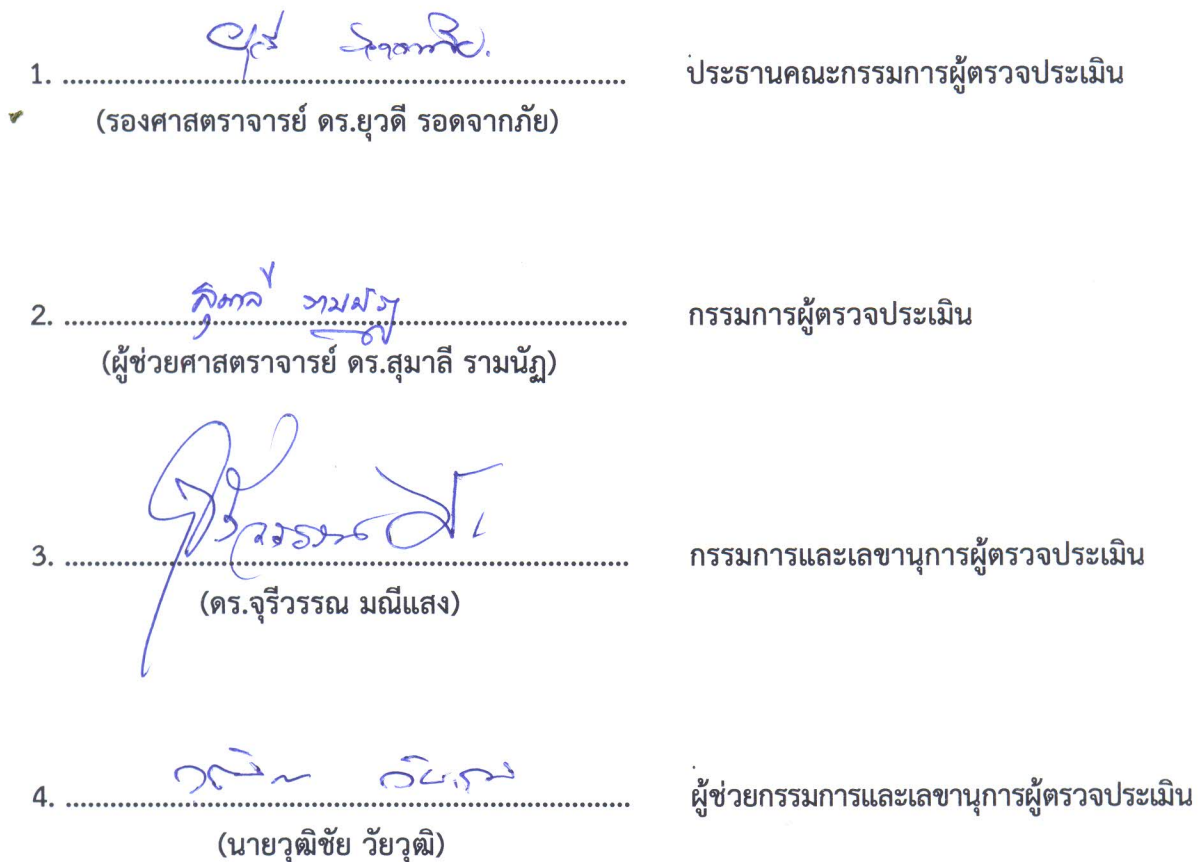 1. ........................................ ประธานคณะกรรมการผู้ตรวจประเมิน
(รองศาสตราจารย์ ดร.ยุวดี รอดจากภัย)
สุมาลี รามนัฏ
2. ........................................ กรรมการผู้ตรวจประเมิน
(ผู้ช่วยศาสตราจารย์ ดร.สุมาลี รามนัฏ)
จุรีวรรณ
3. ........................................ กรรมการและเลขานุการผู้ตรวจประเมิน
(ดร.จุรีวรรณ มณีแสง)
4. ........................................ ผู้ช่วยกรรมการและเลขานุการผู้ตรวจประเมิน
(นายวุฒิชัย วัยวุฒิ)